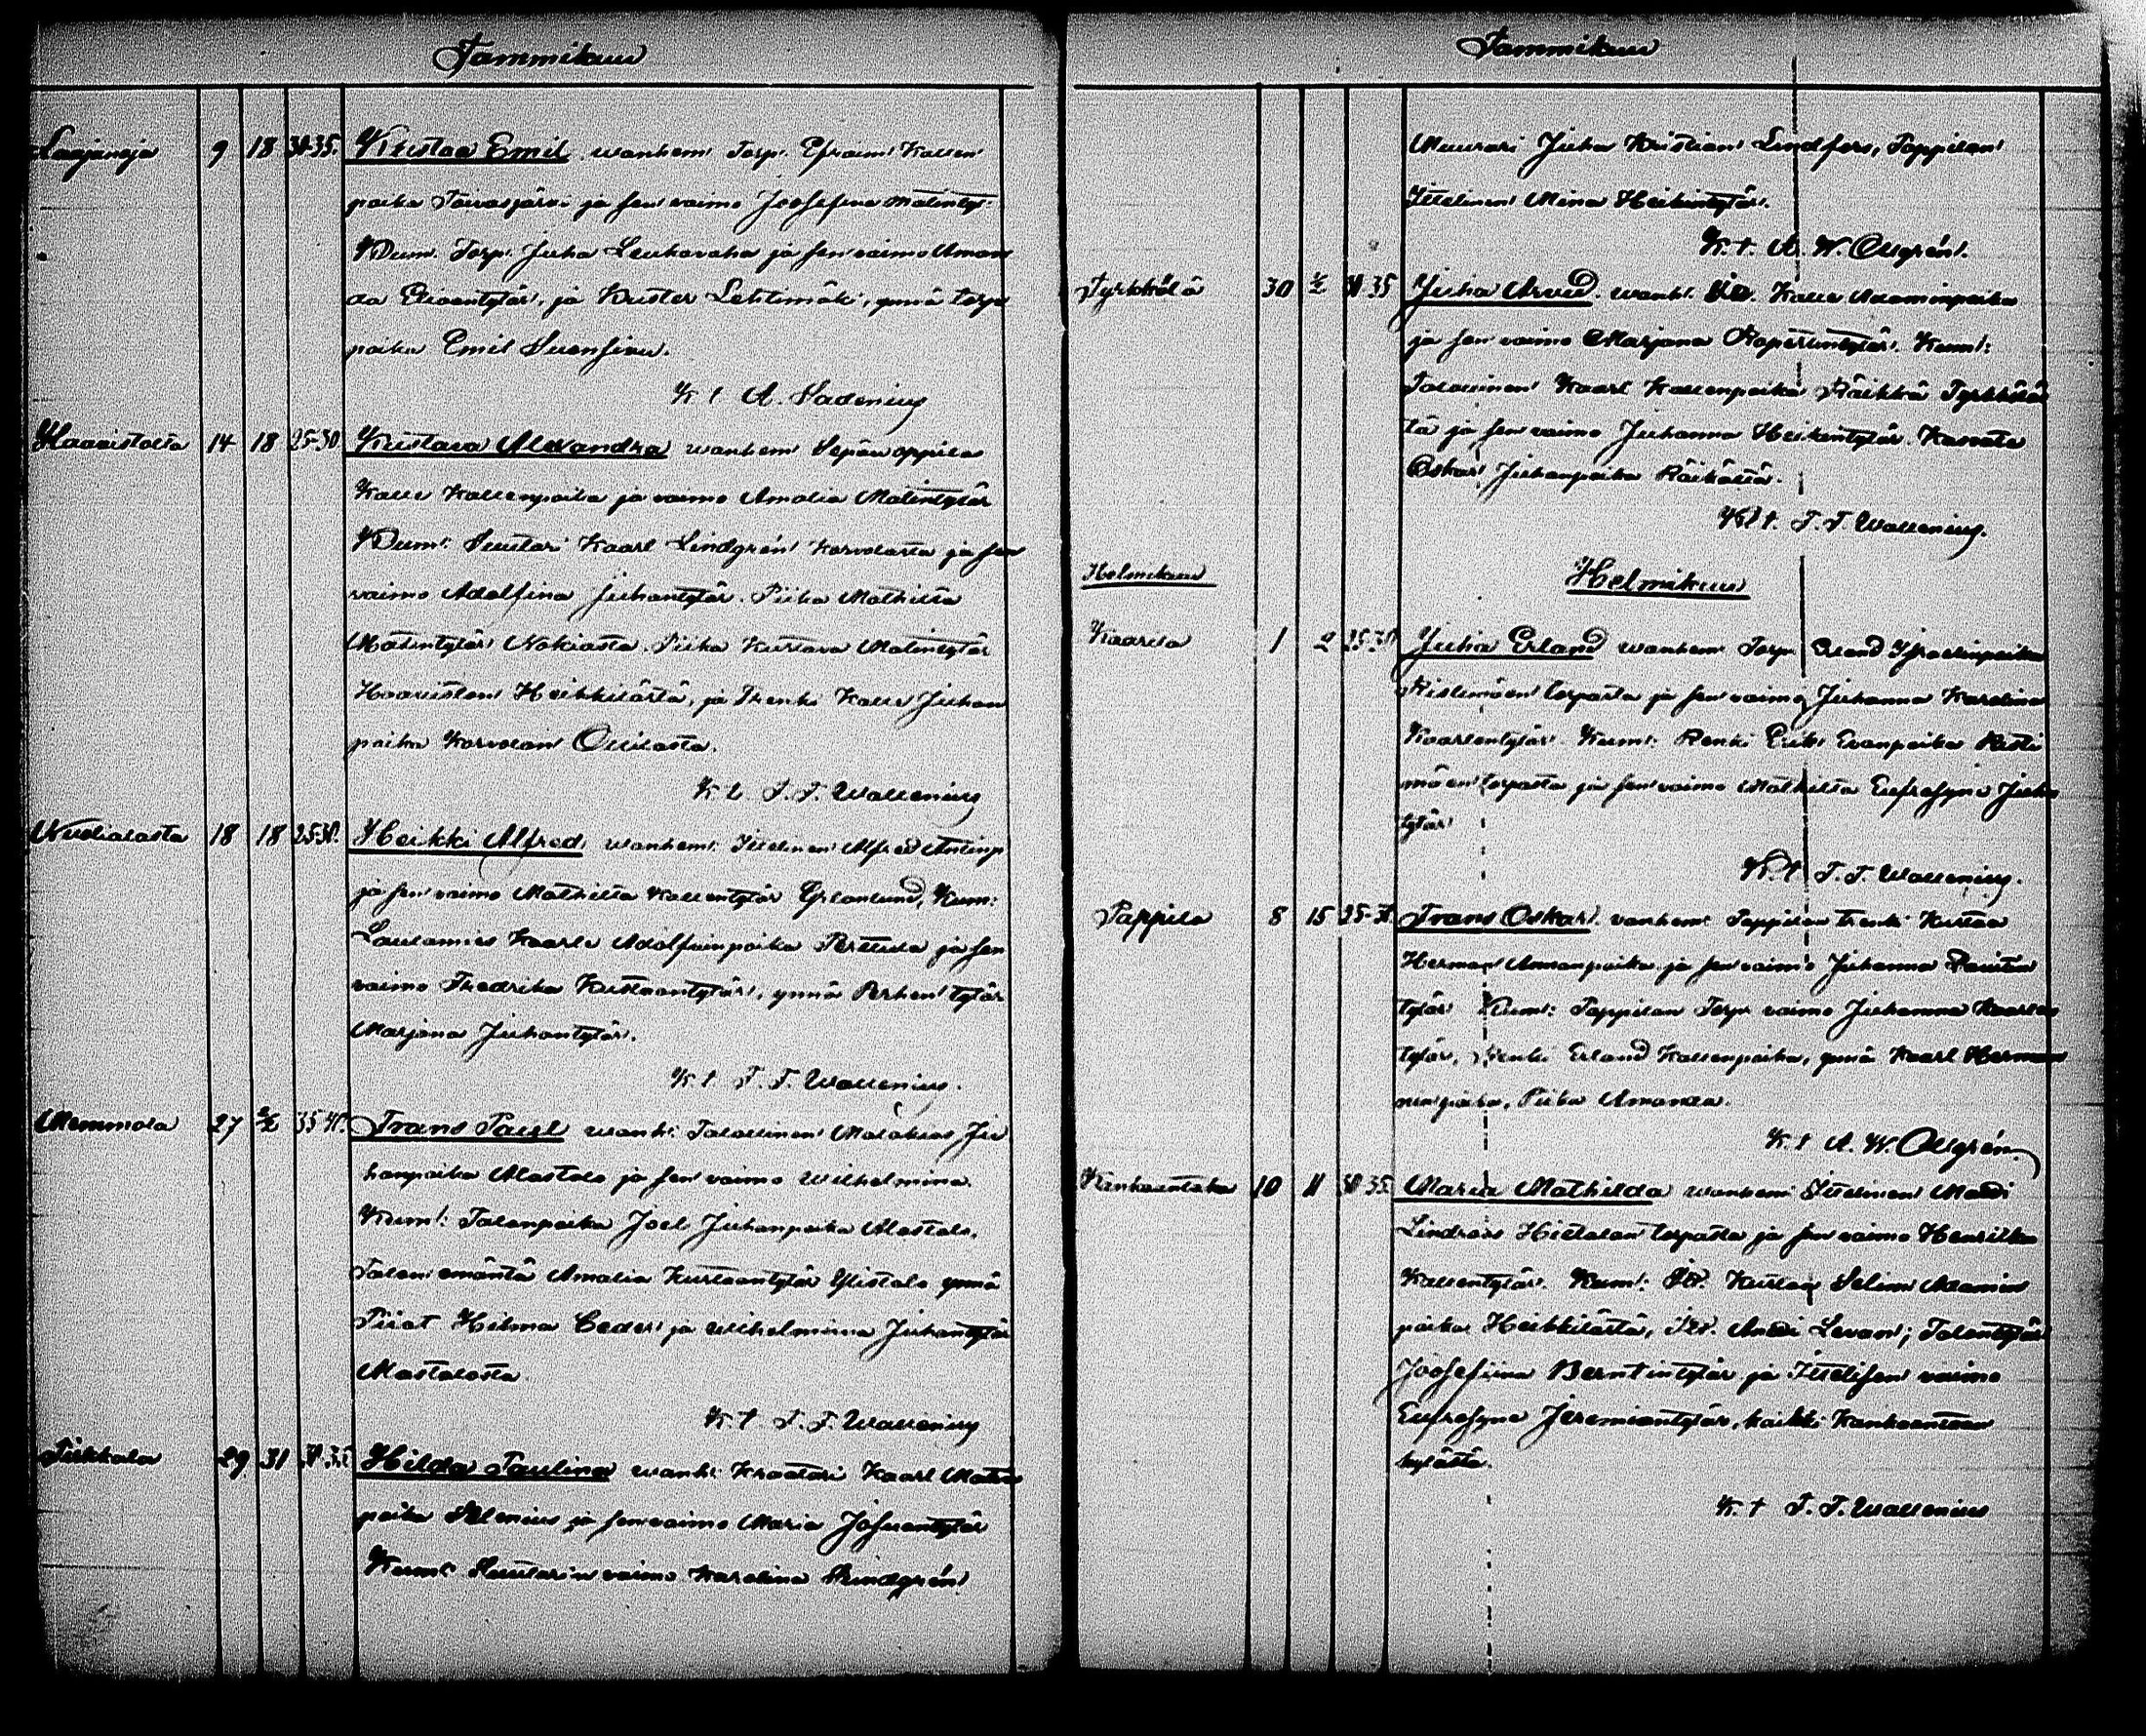 Tammikuu
Laajanoja 9 18 30-35. Kustaa Emil wanhem: Torp. Efraim Kallen
poika Taivasjärvi ja sen vaimo Joosefina Matintyt:
Kum. Torp. Juha Leukavaha ja sen vaimo Aman
da Eliaentytär, ja Kuster Lehtimäki, ynnä torp
poika Emil
K t A. Sadenius
Haavistolta 14 18 25-30 Kustava Alexandra wanhem: Sepän oppilas
Kalle Kallenpoika ja vaimo Amalia Matintytär
Kum: Suutari Kaarl Lindgrén Korvolasta ja sen
vaimo Adolfina Juhantytär. Piika Mathilta
Matintytär Nokiasta. Piika Kustava Matintytär
Haaviston Heikkilästä, ja Trenki Kalle Juhan
poika Korvolan Ollilasta.
K t. T. T. Wallenius
18 18 25-30. Heikki Alfred wanhem: Itellinen Alfred Antinp
ja sen vaimo Mathilta Kallentytär Grönlund, Kum:
Lautamies Kaarle Adolfinpoika Perttula ja sen
vaimo Fredrika Kustaantytär, ynnä Perhen tytär
Marjana Juhantytär.
K t T. T. Wallenius.
Memmola 27 2/2 35-40. Frans Paul wanh: Talollinen Malakias Ju
hanpoika Alastalo ja sen vaimo Wilhelmina.
Kum: Talonpoika Joel Juhanpoika Alastalo,
Talon emäntä Amalia Kustaantytär Ylistalo ynnä
Piiat Hilma Ceder ja Wilhelmina Juhantytär
Alastalosta
K. t T. T. Wallenius
Pirkkala 29 31 30-35 Hilda Paulina wanh: Kraatari Kaarl Matin
poika Selenius ja sen vaimo Maria Josuantytär
Kum: Suutarin vaimo Karolina Lindgrén
Tammikuu
Muurari Juha Kristian Lindfors, Pappilan
Itellinen Mina Heikintytär.
K. t. A. W. Ollgrén.
Tyrkkölä 30 2/2 30-35 Juha Arvid. wanh: Its. Kalle Adaminpoika
ja sen vaimo Marjana Kasperintytär. Kum:
Talollinen Kaarl Kallenpoika Räikkä Tyrkköläs
tä ja sen vaimo Juhanna Heikintytär. Kasvatti
Oskar Juhanpoika Räikältä.
K t. T. T. Wallenius.
Helmikuu Helmikuu
Kaarila 1 2 25-30 Juha Erland wanhem Torp Erland Israelinpoika
Ristimäen torpasta ja sen vaimo Juhanna Karolina
Kaarlentytär. Kum: Renki Erik Evanpoika Risti
mäen torpasta ja sen vaimo Mathilta Eufrosyne Juha
tytär
K. t T. T. Wallenius.
Pappila 8 15 25-30 Frans Oskar. vanhem: Pappilan trenki Kustaa
Herman Annanpoika ja sen vaimo Juhanna
tytär Kum: Pappilan Torp. vaimo Juhanna Kaarlen
tytär, Renki Erland Kallenpoika, ynnä Kaarl Herman
ninpoika, Piika Amanda.
K. t A. W. Ollgrén.
Kankaantaka 10 11 30-35. Maria Mathilda wanhem: Itellinen Matti
Lindroos Hietalan torpasta ja sen vaimo Henrika
Kallentytär. Kum: Itl. Kustaa Selim Adamin
poika Heikkilästä, Itl. Antti Levan; Talontytär
Joosefiina Berntintytär ja Itellisen vaimo
Eufrosyne Jeremiantytär, kaikki Kankaantaan
kylästä.
K. t T. T. Wallenius